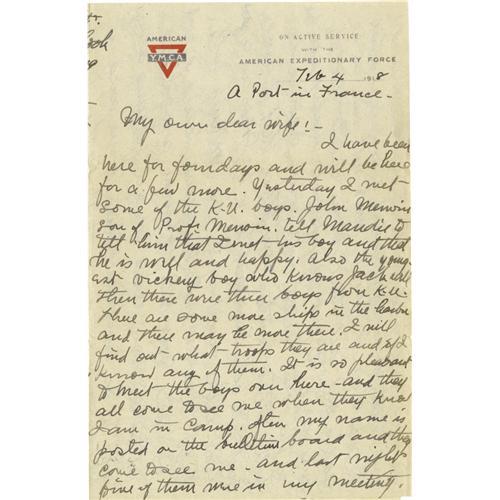 AMERICAN
Y.M.C.A.
ON ACTIVE SERVICE
WITH THE
AMERICAN EXPEDITIONARY FORCE
Feb 4 1918
A Port in France-
My own dear wife!-
I have been
here for four days and will be here
for a few more. Yesterday I met
some of the K.U. boys. John Merwin
son of Prof. Merwin. tell Maudie to
tell him that I met his boy and that
he is well and happy. Also the young-
est Vickery boy who knows Jack well
then there were three boys from K.U.
there are some more ships in the
and there may be more there. I will
find out what troops they are and if I
know any of them. It is so pleasant
to meet the boys over here - and they
all come to see me when they know
I am in Camp. Often my name is
posted on the bulletin board and they
come to see me - and last night
five of them were in my meeting.